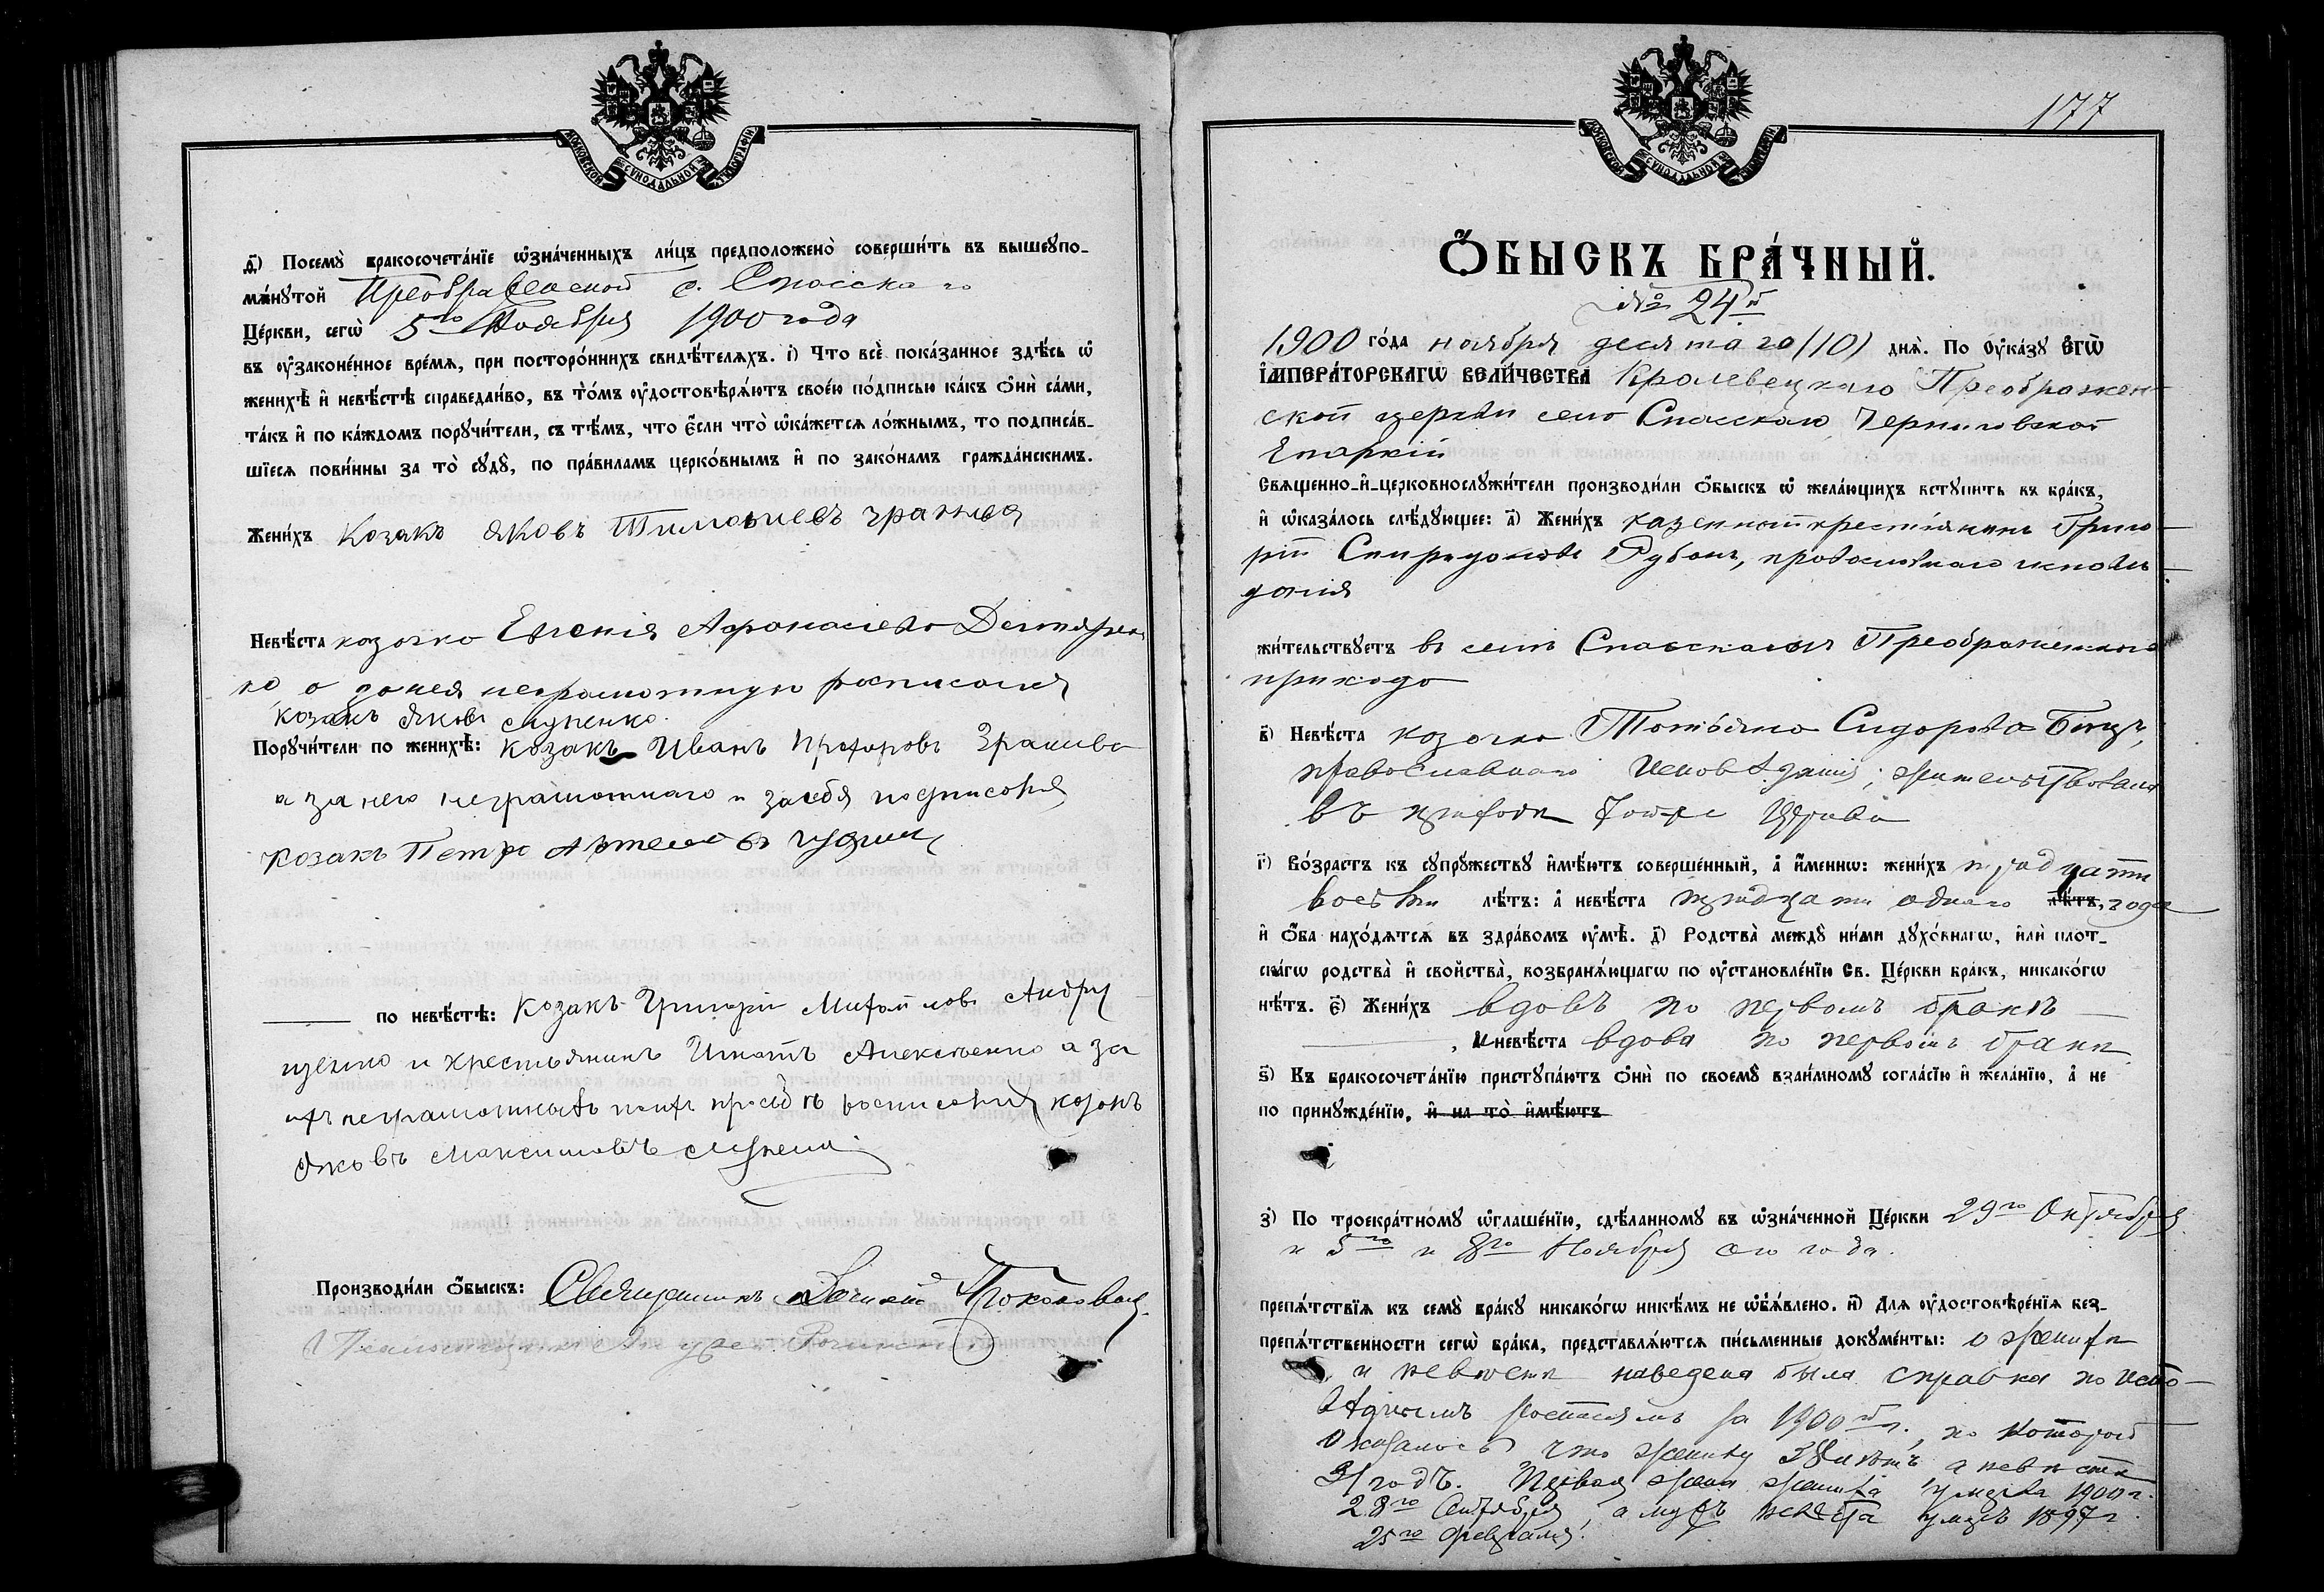 МОСКОВСКОЙ СѴНОДАЛЬНОЙ ТИПОГРАФІИ
д҃) Посемꙋ̀ бракосочета́нїе ѡ҆зна́ченныхъ ли́цъ предположено̀ соверши́ть въ вышеꙋпо-
мѧ́нꙋтой Преображенской с. Спасскаго
Це́ркви, сегѡ̀ 5го Ноября 1900 года
въ ᲂу҆законе́нное вре́мѧ, при посторо́ннихъ свидѣ́телѧхъ. і҃) Что всѐ пока́занное здѣ́сь ѡ҆
женихѣ̀ и҆ невѣ́стѣ справедли́во, въ то́мъ ᲂу҆достовѣрѧ́ютъ свое́ю по́дписью ка́къ ѻ҆нѝ са́ми,
та́къ и҆ по ка́ждомъ порꙋчи́тели, съ тѣ́мъ, что є҆́сли что̀ ѡ҆ка́жетсѧ ло́жнымъ, то подписа́в-
шїесѧ пови́нны за то̀ сꙋдꙋ̀, по пра́виламъ церко́внымъ и҆ по зако́намъ гражда́нскимъ.
Жени́хъ Козакъ Яковъ Тимофіевъ
Невѣ́ста козачка Евгенія Афанасіева Дегтярен
ко, а за нея неграмотную росписался
козакъ Яковъ
Порꙋчи́тели по женихѣ̀: козакъ Иванъ Прохоровъ
а за него неграмотнаго и за себя подписался
козакъ Петръ Артемовъ
по невѣ́стѣ: Козакъ Григорій Михайловъ Андру
щенко и крестьянинъ Игнатъ Алексеенко а за
ихъ неграмотныхъ по ихъ просьбѣ росписался козакъ
Яковъ Максимовъ
Производи́ли ѻ҆́быскъ: Священникъ
177
МОСКОВСКОЙ СѴНОДАЛЬНОЙ ТИПОГРАФІИ
Ѻ҆́БЫСКЪ БРА́ЧНЫЙ.
№ 24й
1900 го́да ноября десятаго /10/ днѧ̀. По Оу҆ка́зꙋ Є҆гѡ̀
І҆мпера́торскагѡ Вели́чества Кролевецкаго Преображен-
ской церкви села Спасскаго, Черниговской
Епархіи
Свѧщенно-и҆-церковнослꙋжи́тели производи́ли ѻ҆́быскъ ѡ҆ жела́ющихъ встꙋпи́ть въ бра́къ,
и҆ ѡ҆каза́лось слѣ́дꙋющее: а҃) Жени́хъ казенный крестьянинъ Григо-
рій Спиридоновъ Рубанъ, православнаго исповѣ-
данія
жи́тельствꙋетъ въ селѣ Спасскомъ Преображенскаго
прихода
в҃) Невѣ́ста козачка Татьяна Сидорова
православнаго исповѣданія; жительствовала
въ приходѣ тойже Церкви
г҃) Во́зрастъ къ сꙋпрꙋ́жествꙋ и҆мѣ́ютъ соверше́нный, а҆ и҆́меннѡ: жени́хъ тридцати
восьми лѣ́тъ: а҆ невѣ́ста тридцати одного лѣ́тъ, года
и҆ ѻ҆́ба нахо́дѧтсѧ въ здра́вомъ ᲂу҆мѣ̀. д҃) Родства̀ междꙋ̀ ни́ми дꙋхо́внагѡ, и҆лѝ плот-
ска́гѡ родства̀ и҆ сво́йства̀, возбранѧ́ющагѡ по ᲂу҆становле́нїю Св. Це́ркви бра́къ, никако́гѡ
нѣ́тъ. є҃) Жени́хъ вдовъ по первомъ бракѣ
, и невѣ́ста вдова по первомъ бракѣ
ѕ҃) Къ бракосочета́нїю пристꙋпа́ютъ ѻ҆нѝ по своемꙋ̀ взаи́мномꙋ согла́сїю и҆ жела́нїю, а҆ не
по принꙋжде́нїю, и҆ на то̀ и҆мѣ́ютъ
з҃) По троекра́тномꙋ ѡ҆глаше́нїю, сдѣ́ланномꙋ въ ѡ҆зна́ченной Це́ркви 29го Октября
и 5го и 8го Ноября сего года.
препѧ́тствїѧ къ семꙋ̀ бра́кꙋ никако́гѡ никѣ́мъ не ѡ҆б̾ѧ́влено. и҃) Длѧ ᲂу҆достовѣре́нїѧ без-
препѧ́тственности сегѡ̀ бра́ка, представлѧ́ютсѧ пи́сьменные докꙋме́нты: о женихѣ
и невѣстѣ наведена была справка по испо-
вѣднымъ росписямъ за 1900й г., по которой
оказалось что жениху 38 лѣтъ а невѣстѣ
31 годъ. Первая жена жениха умерла 1900 г.
28го Сентября, а мужъ невѣсты умеръ 1897 г.
25го февраля.